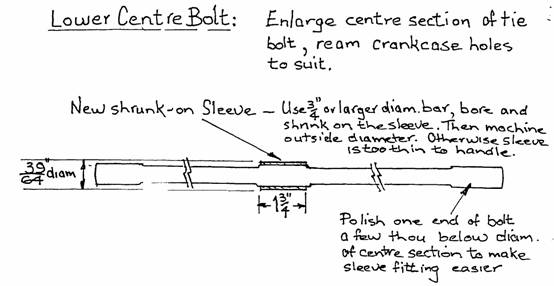 Lower Centre Bolt: Enlarge centre section of tie
bolt, ream crankcase holes
to suit.
New shrunk-on Sleeve — Use 3/4" or larger diam. bar, bore and
shrink on the sleeve. Then machine
outside diameter. Otherwise sleeve
is too thin to handle.
39/64" diam
1 3/4"
Polish one end of bolt
a few thou below diam.
of centre section to make
sleeve fitting easier